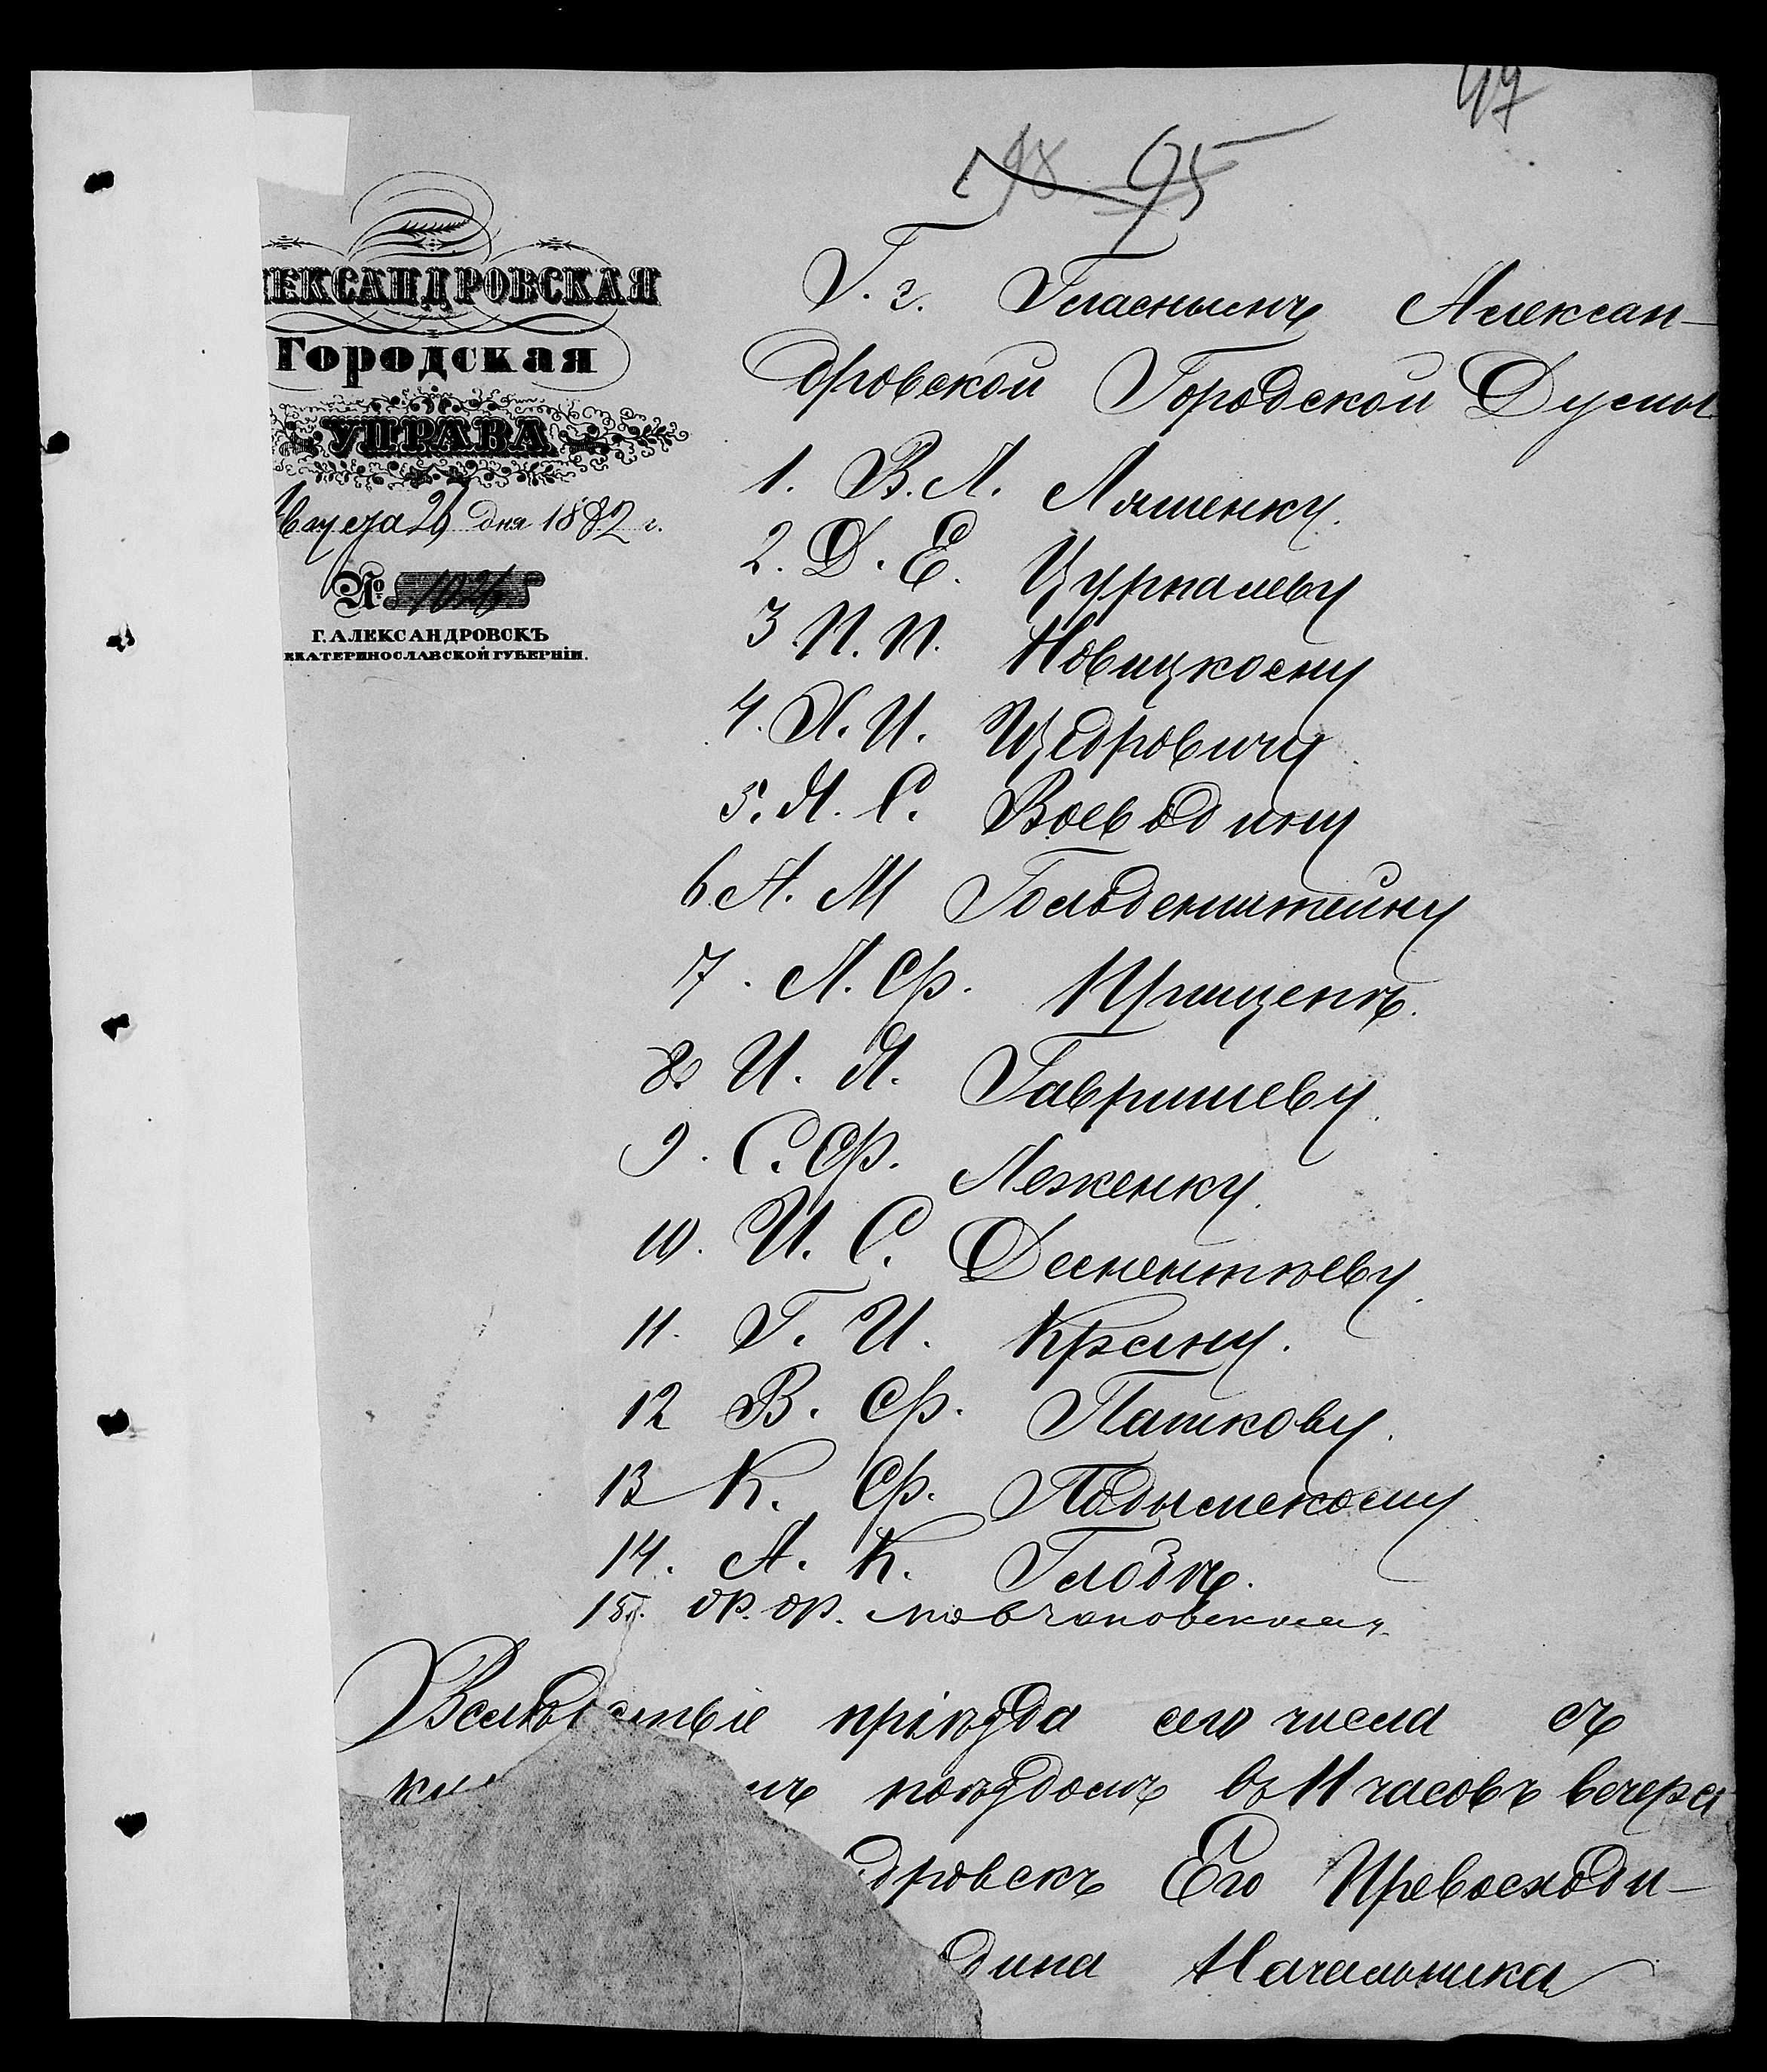 47
98 95
ЛЕКСАНДРОВСКАЯ
Городская
УПРАВА
Августа 2 дня 1882 г.
№ 1026
Г. АЛЕКСАНДРОВСКЪ
ЕКАТЕРИНОСЛАВСКОЙ ГУБЕРНІИ.
Г. г. Гласнымъ Алексан-
дровской Городской Думы
1. В. Л. Ляшенку.
2. Д. Е. Цурпалеву
3. П. П. Новицкому
4. Х. И. Щедровичу
5. Я. С. Воеводину
6 А. М Гольденштейну
7. Л. Ф. Прищепѣ.
8. И. Я. Гавришеву.
9. С. Ф. Леженку.
10. И. С. Дементьеву.
11. Г. И. Крамну.
12 В. Ф. Пашкову.
13 К. Ф. Подымскому
14. А. К. Глобѣ.
15. Ф. Ф. Мовчановскому.
Вслѣдствіе пріѣзда сего числа съ
мъ поѣздомъ въ 11 часовъ вечера
дровскъ Его Превосходи-
дина Начальника